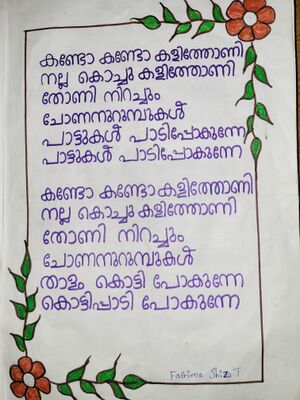 കണ്ടോ കണ്ടോ കളിത്തോണി
നല്ല കൊച്ചു കളിത്തോണി
തോണി നിറച്ചും
ചോണനുറുമ്പുകൾ
പാട്ടുകൾ പാടിപ്പോകുന്നേ
പാട്ടുകൾ പാടിപ്പോകുന്നേ
കണ്ടോ കണ്ടോ കളിത്തോണി
നല്ല കൊച്ചു കളിത്തോണി
തോണി നിറച്ചും
ചോണനുറുമ്പുകൾ
താളം കൊട്ടി പോകുന്നേ
കൊട്ടിപ്പാടി പോകുന്നേ
Fathima Shiza.T